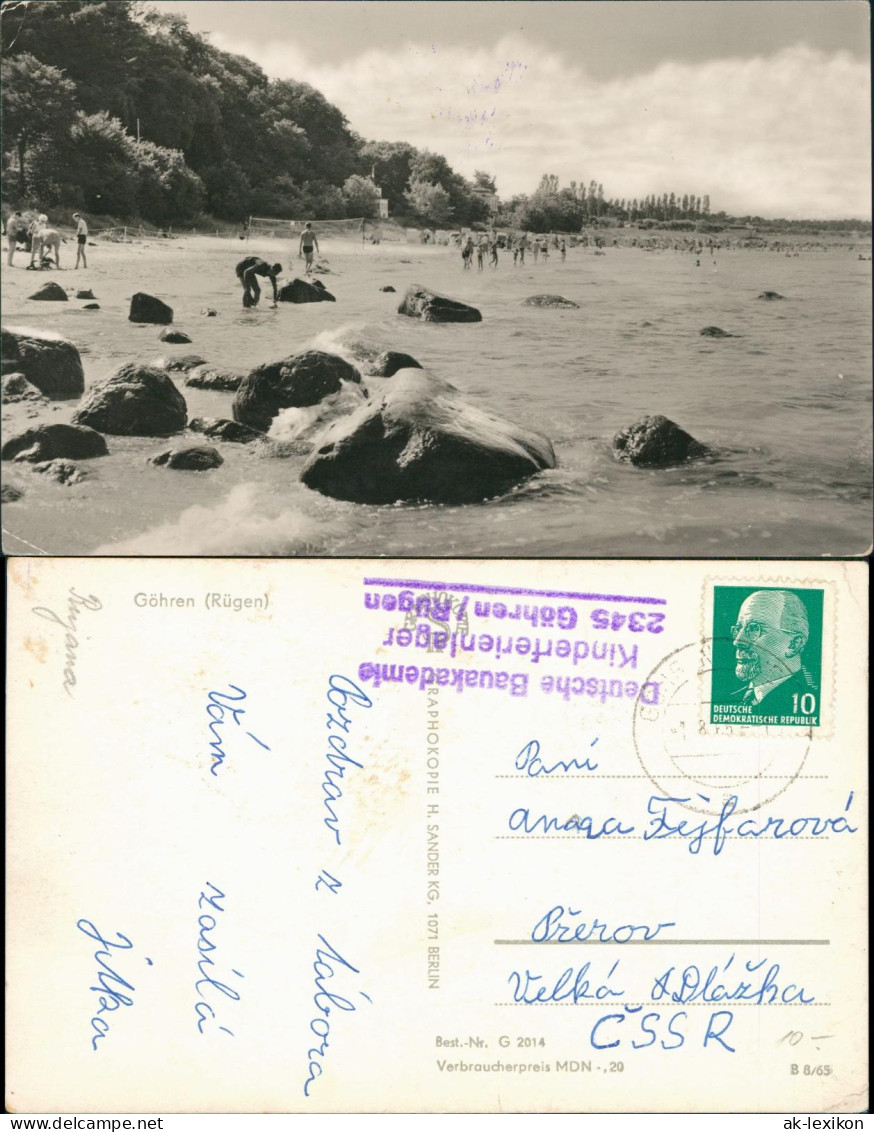 Göhren (Rügen)
Rujana
Deutsche Bauakademie
Kinderferienlager
2345 Göhren / Rügen
DEUTSCHE 10
DEMOKRATISCHE REPUBLIK
Pozdrav z tábora
Vám zasílá
Jitka
GRAPHOKOPIE H. SANDER KG, 1071 BERLIN
Paní
Fejfarová
Přerov
Velká Dlážka
ČSSR
10 -
Best.-Nr. G 2014
Verbraucherpreis MDN -,20
B 8/65
ak-lexikon